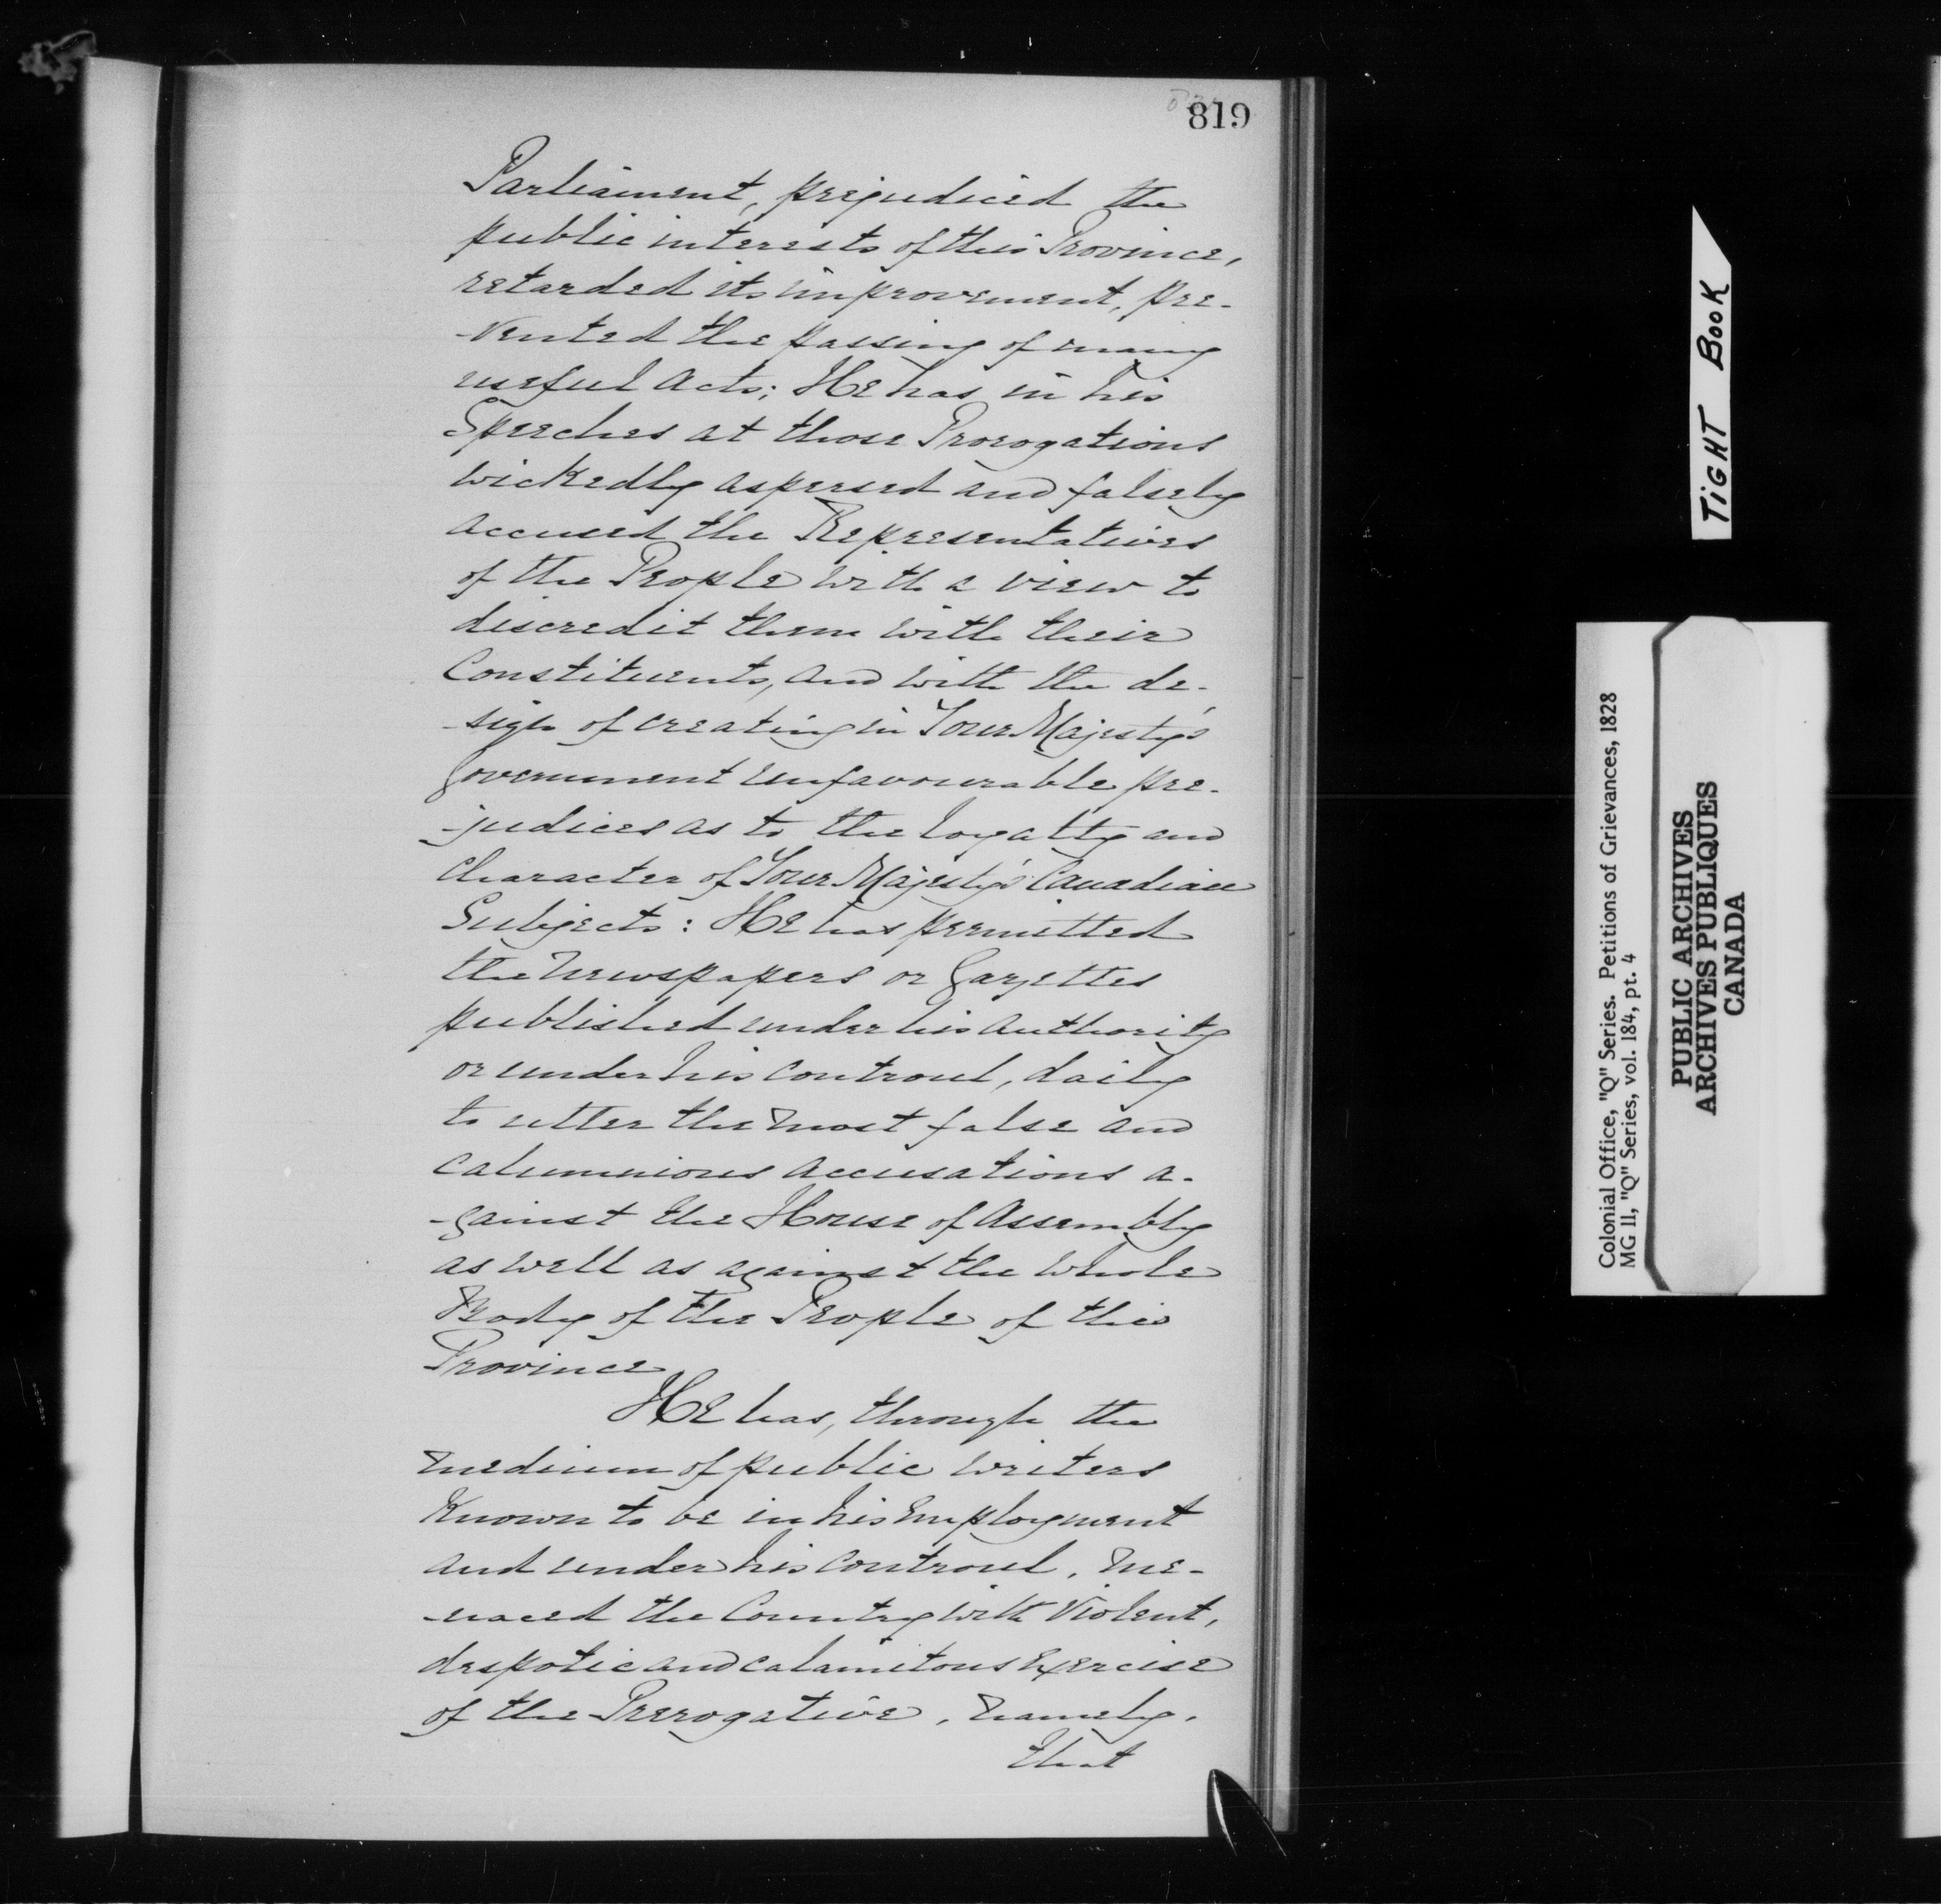 819
Parliament, prejudiced the
public interests of this Province,
retarded its improvement, pre-
-vented the passing of many
useful Acts; He has in his
Speeches at those Prorogations
wickedly aspersed and falsely
accused the Representatives
of the People with a view to
discredit them with their
Constituents, and with the de-
-sign of creating in Your Majesty's
Government unfavourable pre-
-judices as to the loyalty and
Character of Your Majesty's Canadian
Subjects: He has permitted
the Newspapers or Gazettes
published under his authority
or under his controul, daily
to utter the most false and
calumnious accusations a-
-gainst the House of Assembly
as well as against the whole
Body of the People of this
Province
He has, through the
medium of public writers
Known to be in his Employment
and under his controul, me-
-naced the Country with Violent,
despotic and calamitous Exercise
of the Prerogative, namely,
that
TIGHT BOOK
Colonial Office, "Q" Series. Petitions of Grievances, 1828
MG 11, "Q" Series, vol. 184, pt. 4
PUBLIC ARCHIVES
ARCHIVES PUBLIQUES
CANADA